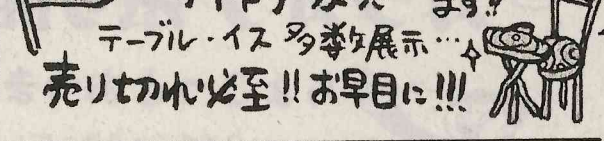 ます!!
テーブル・イス 多数展示…
売り切れ必至!! お早目に!!!